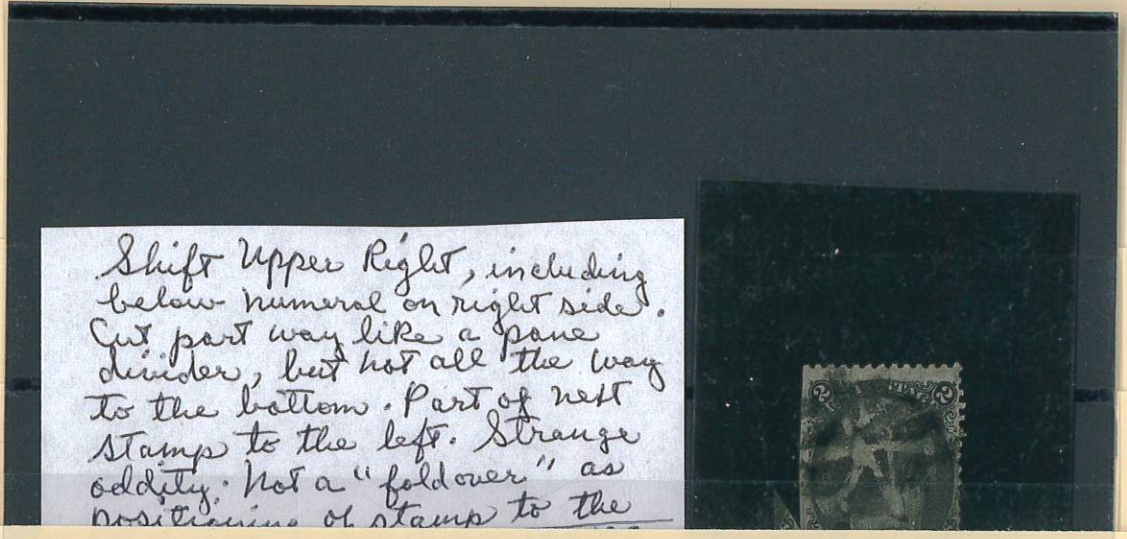 Shift Upper Right, including
below numeral on right side.
Cut part way like a pane
divider, but not all the way
to the bottom. Part of next
stamp to the left. Strange
oddity. Not a "foldover" as
positioning of stamp to the
2 2